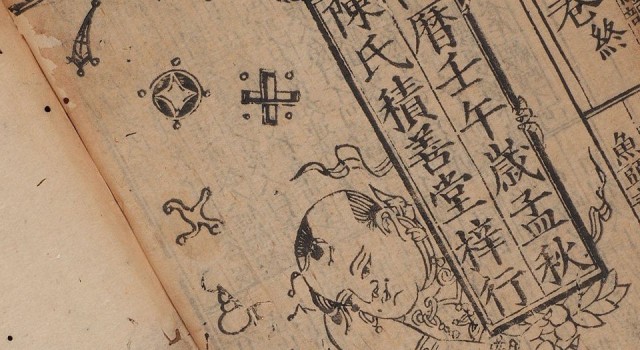 暦壬午歳孟秋
陳氏積善堂梓行
卷終